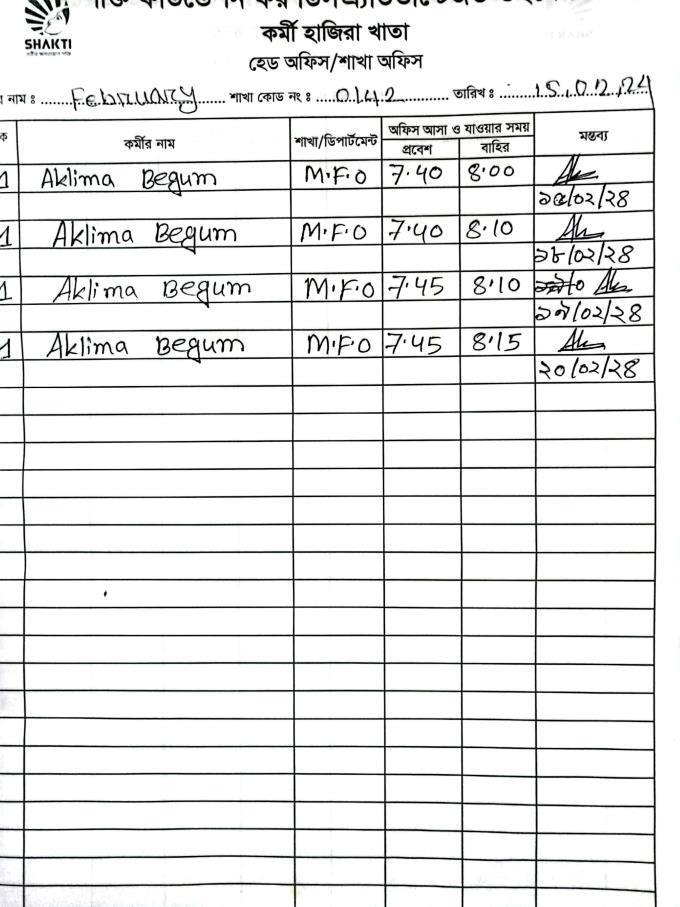 SHAKTI
কর্মী হাজিরা খাতা
হেড অফিস/শাখা অফিস
নাম ঃ February শাখা কোড নং ঃ 0142 তারিখ ঃ 15.02.24
ক কর্মীর নাম শাখা/ডিপার্টমেন্ট অফিস আসা ও যাওয়ার সময় মন্তব্য
প্রবেশ বাহির
1 Aklima Begum M.F.O 7.40 8.00
১৫/০২/২৪
1 Aklima Begum M.F.O 7.40 8.10
১৮/০২/২৪
1 Aklima Begum M.F.O 7.45 8.10
১৯/০২/২৪
1 Aklima Begum M.F.O 7.45 8.15
২০/০২/২৪